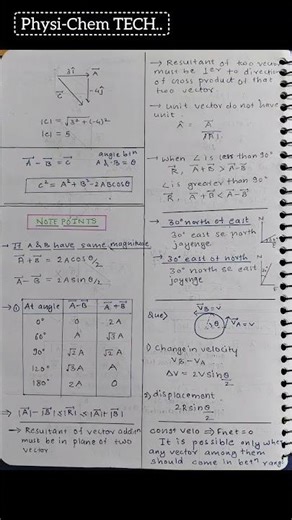 Physi-Chem TECH..
3î
A
C
-4ĵ
|C| = √3²+(-4)²
|C| = 5
A - B = C
angle b/w
A & B = θ
C² = A² + B² - 2ABcosθ
NOTE POINTS
→ If A & B have same magnitude
A + B = 2Acosθ/2
A - B = 2Asinθ/2
→ ① At angle A - B A + B
0° 0 2A
60° A √3A
90° √2A √2A
120° √3A A
180° 2A 0
⇒ |A| - |B| ≤ |R| ≤ |A| + |B|
→ Resultant of vector addition
must be in plane of two
vector
→ Resultant of two
must be ⊥er to direction
of cross product of that
two vector
→ Unit vector do not have
unit.
Â = A
|A|
→ When ∠ is less than 90°
R, A + B > A - B
∠ is greater than 90°
R, A + B < A - B
→ 30° north of east
30° east se north
jayenge
→ 30° east of north
30° north se east
jayenge
N
N
Que)
V_B = V
V_A = V
θ
1) Change in velocity
V_B - V_A
ΔV = 2V sin θ/2
2) displacement
2R sin θ/2
const velo ⇒ Fnet = 0
It is possible only when
any vector among them
should come in betn range